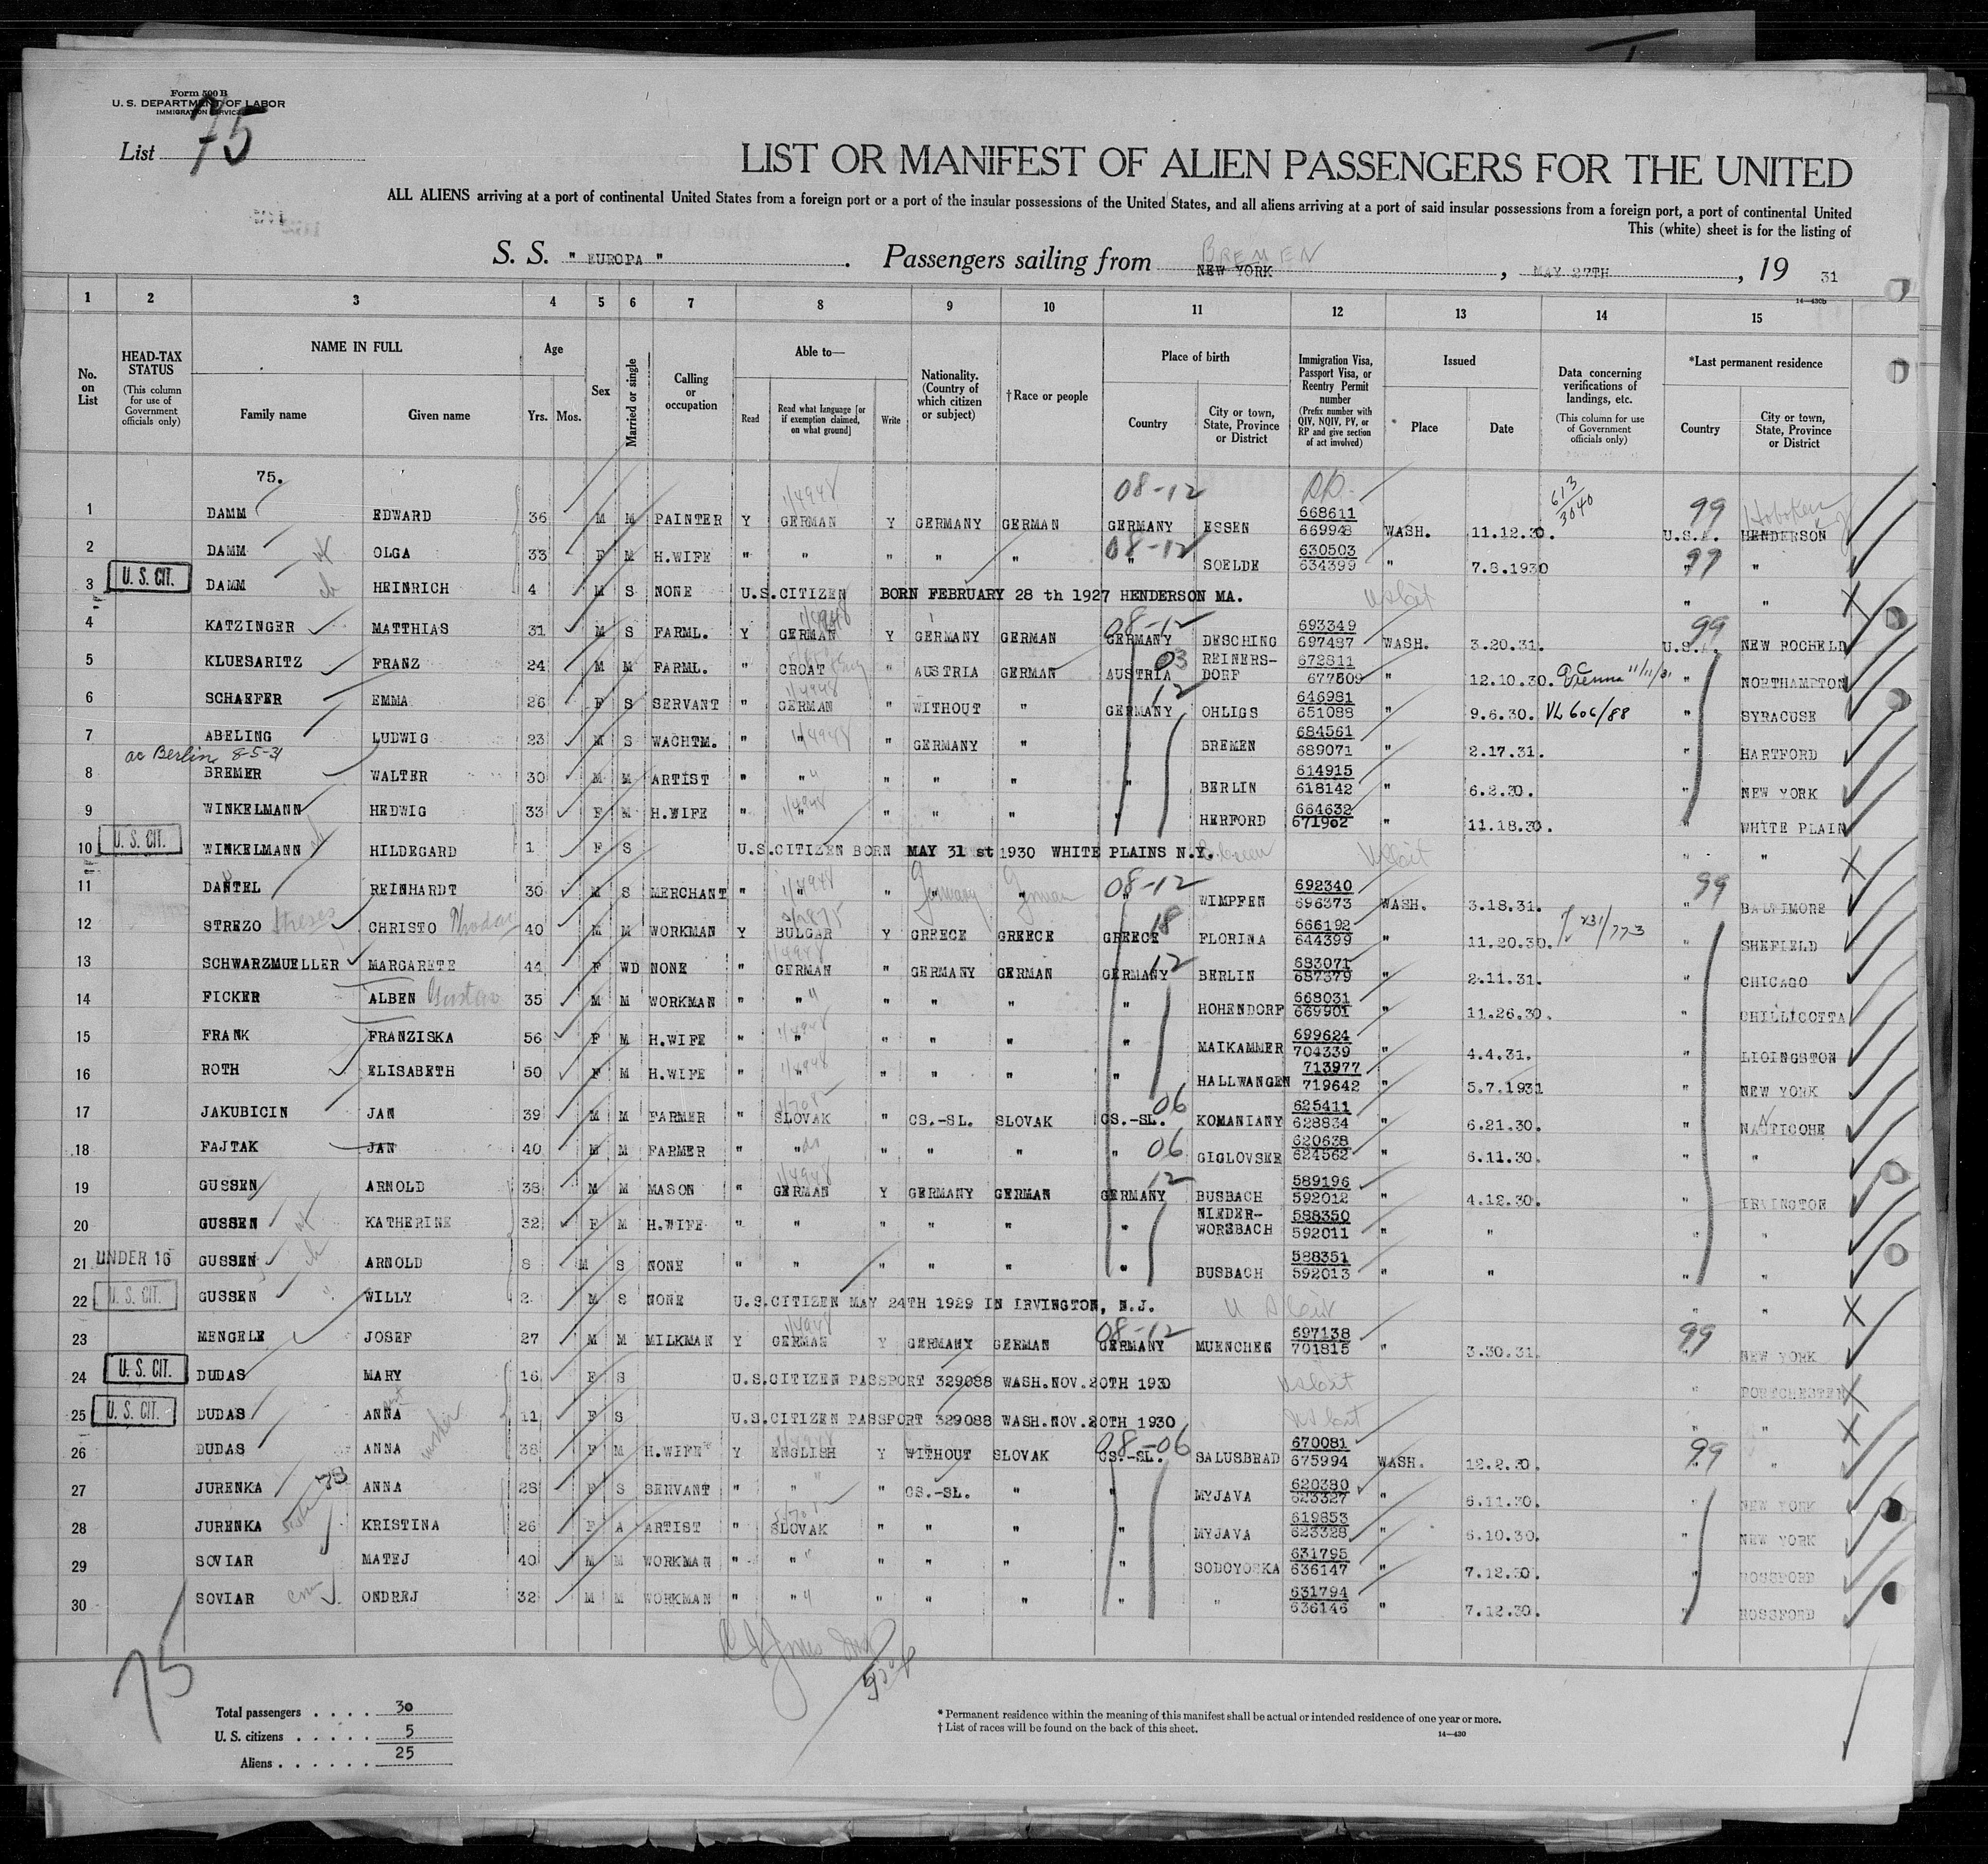 Form 500 B
U. S. DEPARTMENT OF LABOR
IMMIGRATION SERVICE
List 75
LIST OR MANIFEST OF ALIEN PASSENGERS FOR THE UNITED
ALL ALIENS arriving at a port of continental United States from a foreign port or a port of the insular possessions of the United States, and all aliens arriving at a port of said insular possessions from a foreign port, a port of continental United
This (white) sheet is for the listing of
S. S. " EUROPA " . Passengers sailing from BREMEN NEW YORK , MAY 27TH , 19 31
14—430b
1 2 3 4 5 6 7 8 9 10 11 12 13 14 15
No. on List
HEAD-TAX STATUS (This column for use of Government officials only)
NAME IN FULL Family name Given name
Age Yrs. Mos.
Sex
Married or single
Calling or occupation
Able to— Read Read what language [or if exemption claimed, on what ground] Write
Nationality. (Country of which citizen or subject)
†Race or people
Place of birth Country City or town, State, Province or District
Immigration Visa, Passport Visa, or Reentry Permit number (Prefix number with QIV, NQIV, PV, or RP and give section of act involved)
Issued Place Date
Data concerning verifications of landings, etc. (This column for use of Government officials only)
*Last permanent residence Country City or town, State, Province or District
75.
1 DAMM EDWARD 36 M M PAINTER Y GERMAN Y GERMANY GERMAN 08-12 GERMANY ESSEN 668611 669948 WASH. 11.12.30. 613/3040 99 U.S.A. Hoboken HENDERSON
2 DAMM wf OLGA 33 F M H.WIFE " " " " " 08-12 " SOELDE 630503 634399 " 7.8.1930 99 " "
3 U. S. CIT. DAMM ch HEINRICH 4 M S NONE U.S.CITIZEN BORN FEBRUARY 28 th 1927 HENDERSON MA. " "
4 KATZINGER MATTHIAS 31 M S FARML. Y GERMAN Y GERMANY GERMAN 08-12 GERMANY DESCHING 693349 697487 WASH. 3.20.31. 99 U.S.A. NEW ROCHELD
5 KLUESARITZ FRANZ 24 M M FARML. " CROAT " AUSTRIA GERMAN 03 AUSTRIA REINERS-DORF 672811 677809 " 12.10.30. Vienna 11/11/31 " NORTHAMPTON
6 SCHAEFER EMMA 26 F S SERVANT " GERMAN " WITHOUT " 12 GERMANY OHLIGS 646981 651088 " 9.6.30. VL 606/88 " SYRACUSE
7 ABELING LUDWIG 23 M S WACHTM. " " " GERMANY " BREMEN 684561 689071 " 2.17.31. " HARTFORD
ac Berlin 8-5-31
8 BREMER WALTER 30 M M ARTIST " " " " " " BERLIN 614915 618142 " 6.2.30. " NEW YORK
9 WINKELMANN HEDWIG 33 F M H.WIFE " " " " " " HERFORD 664632 671902 " 11.18.30. " WHITE PLAIN
10 U. S. CIT. WINKELMANN HILDEGARD 1 F S U.S.CITIZEN BORN MAY 31 st 1930 WHITE PLAINS N.Y. " "
11 DANTEL REINHARDT 30 M S MERCHANT " " " Germany German 08-12 " WIMPFEN 692340 696373 WASH. 3.18.31. 99 " BALTIMORE
12 STREZO CHRISTO 40 M M WORKMAN Y BULGAR Y GREECE GREECE 18 GREECE FLORINA 666192 644399 " 11.20.30. 231/773 " SHEFIELD
13 SCHWARZMUELLER MARGARETE 44 F WD NONE " GERMAN " GERMANY GERMAN 12 GERMANY BERLIN 683071 687379 " 2.11.31. " CHICAGO
14 FICKER ALBEN Gustav 35 M M WORKMAN " " " " " " HOHENDORF 668031 669901 " 11.26.30. " CHILLICOTTA
15 FRANK FRANZISKA 56 F M H.WIFE " " " " " " MAIKAMMER 699624 704339 " 4.4.31. " LIOINGSTON
16 ROTH ELISABETH 50 F M H.WIFE " " " " " " HALLWANGEN 713977 719642 " 5.7.1931 " NEW YORK
17 JAKUBICIN JAN 39 M M FARMER " SLOVAK " CS.-SL. SLOVAK 06 CS.-SL. KOMANIANY 625411 628834 " 6.21.30. " NAUTICOHE
18 FAJTAK JAN 40 M M FARMER " " " " " " 06 GIGLOVSKE 620638 624562 " 6.11.30. " "
19 GUSSEN ARNOLD 38 M M MASON " GERMAN Y GERMANY GERMAN 12 GERMANY BUSBACH 589196 592012 " 4.12.30. " IRVINGTON
20 GUSSEN wf KATHERINE 32 F M H.WIFE " " " " " " NIEDER-WORSBACH 588350 592011 " " " "
21 UNDER 16 GUSSEN ch ARNOLD 8 M S NONE " " " " " " BUSBACH 588351 592013 " " " "
22 U. S. CIT. GUSSEN " WILLY 2 M S NONE U.S.CITIZEN MAY 24TH 1929 IN IRVINGTON, N.J. " "
23 MENGELE JOSEF 27 M M MILKMAN Y GERMAN Y GERMANY GERMAN 08-12 GERMANY MUENCHEN 697138 701815 " 3.30.31. 99 " NEW YORK
24 U. S. CIT. DUDAS MARY 16 F S U.S.CITIZEN PASSPORT 329088 WASH.NOV.20TH 1930 " PORTCHESTER
25 U. S. CIT. DUDAS ANNA 11 F S U.S.CITIZEN PASSPORT 329088 WASH.NOV.20TH 1930 " "
26 DUDAS ANNA mother 38 F M H.WIFE Y ENGLISH Y WITHOUT SLOVAK 08-06 CS.-SL. SALUSBRAD 670081 675994 WASH. 12.2.30. 99 " "
27 JURENKA ANNA 28 F S SERVANT " " " CS.-SL. " " MYJAVA 620380 623327 " 6.11.30. " NEW YORK
28 JURENKA sister KRISTINA 26 F A ARTIST " SLOVAK " " " " MYJAVA 619853 623328 " 6.10.30. " NEW YORK
29 SOVIAR MATEJ 40 M M WORKMAN " " " " " " SOBOYORKA 631795 636147 " 7.12.30. " ROSSFORD
30 SOVIAR ONDREJ 32 M M WORKMAN " " " " " " " 631794 636146 " 7.12.30. " ROSSFORD
75
Total passengers . . . . 30
U. S. citizens . . . . . 5
Aliens . . . . . . 25
* Permanent residence within the meaning of this manifest shall be actual or intended residence of one year or more.
† List of races will be found on the back of this sheet.
14—430